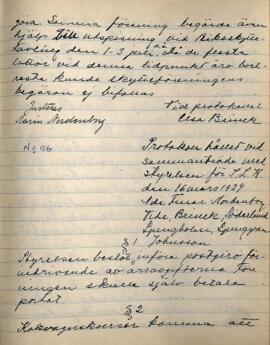 göra. Samma förening begärde även
hjälp till utspisning vid Riksskytte-
tävling den 1-3 juli, då de flesta
lottor vid denna tidpunkt äro bort-
resta kunde skytteföreningens
begäran ej bifallas
Justeras Vid protokollet
Karin Nordenborg Elsa Brinck
No 96
Protokoll hållet vid
sammanträde med
styrelsen för L.L.K
den 16 mars 1929
Nde Fruar Nordenborg
Tide, Brinck, Söderlund
Ljungholm, Ljunggren
Johnsson
§ 1
Styrelsen beslöt införa postgiro för
indrivande av årsavgifterna. Före
ningen skulle själv betala
portot.
§ 2
Kokvagnskurser komma att